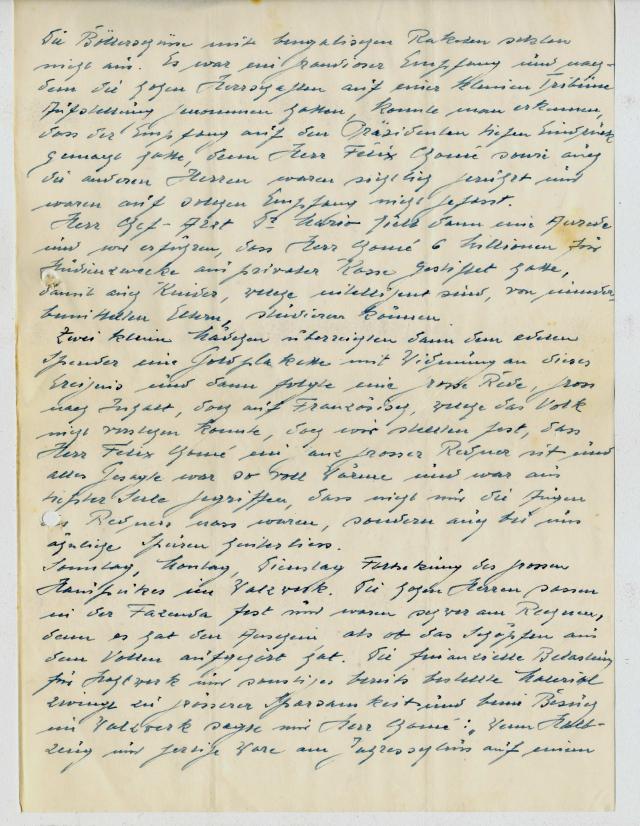 Die Böllerschüsse mit bengalischen Raketen setzten
nicht aus. Es war ein grandioser Empfang und nach-
dem die hohen Herrschaften auf einer kleinen Tribüne
Aufstellung genommen hatten, konnte man erkennen,
dass der Empfang auf den Präsidenten tiefen Eindruck
gemacht hatte, denn Herr Félix Chomé sowie auch
die anderen Herren waren sichtlich gerührt und
waren auf solchen Empfang nicht gefasst.
Herr Chef-Arzt Dr Mario hielt dann eine Anrede
und wir erfuhren, dass Herr Chomé 6 Millionen für
Studienzwecke aus privater Kasse gestiftet hatte,
damit auch Kinder, welche intelligent sind, von minder-
bemittelten Eltern, studieren können.
Zwei kleine Mädchen überreichten dann dem edlen
Spender eine Goldplakette mit Widmung an dieses
Ereignis und dann folgte eine grosse Rede, gross
nach Inhalt, doch auf Französisch, welche das Volk
nicht verstehen konnte, doch wir stellten fest, dass
Herr Félix Chomé ein ganz grosser Redner ist und
alles Gesagte war so voll Wärme und war aus
tiefster Seele gegriffen, dass nicht nur die Augen
des Redners nass waren, sondern auch bei uns
ähnliche Spuren hinterliess.
Sonntag, Montag, Dienstag Fortsetzung des grossen
Hausputzes im Walzwerk. Die hohen Herren sassen
in der Fazenda fest und waren schwer am Rechnen,
denn es hat den Anschein als ob das Schöpfen aus
dem Vollen aufgehört hat. Die finanzielle Belastung
für Walzwerk und sonstiges bereits bestellte Material
zwingt zu grösserer Sparsamkeit und beim Besuch
im Walzwerk sagte mir Herr Chomé: „Wenn Halb-
zeug und fertige Ware am Jahresschluss auf einem